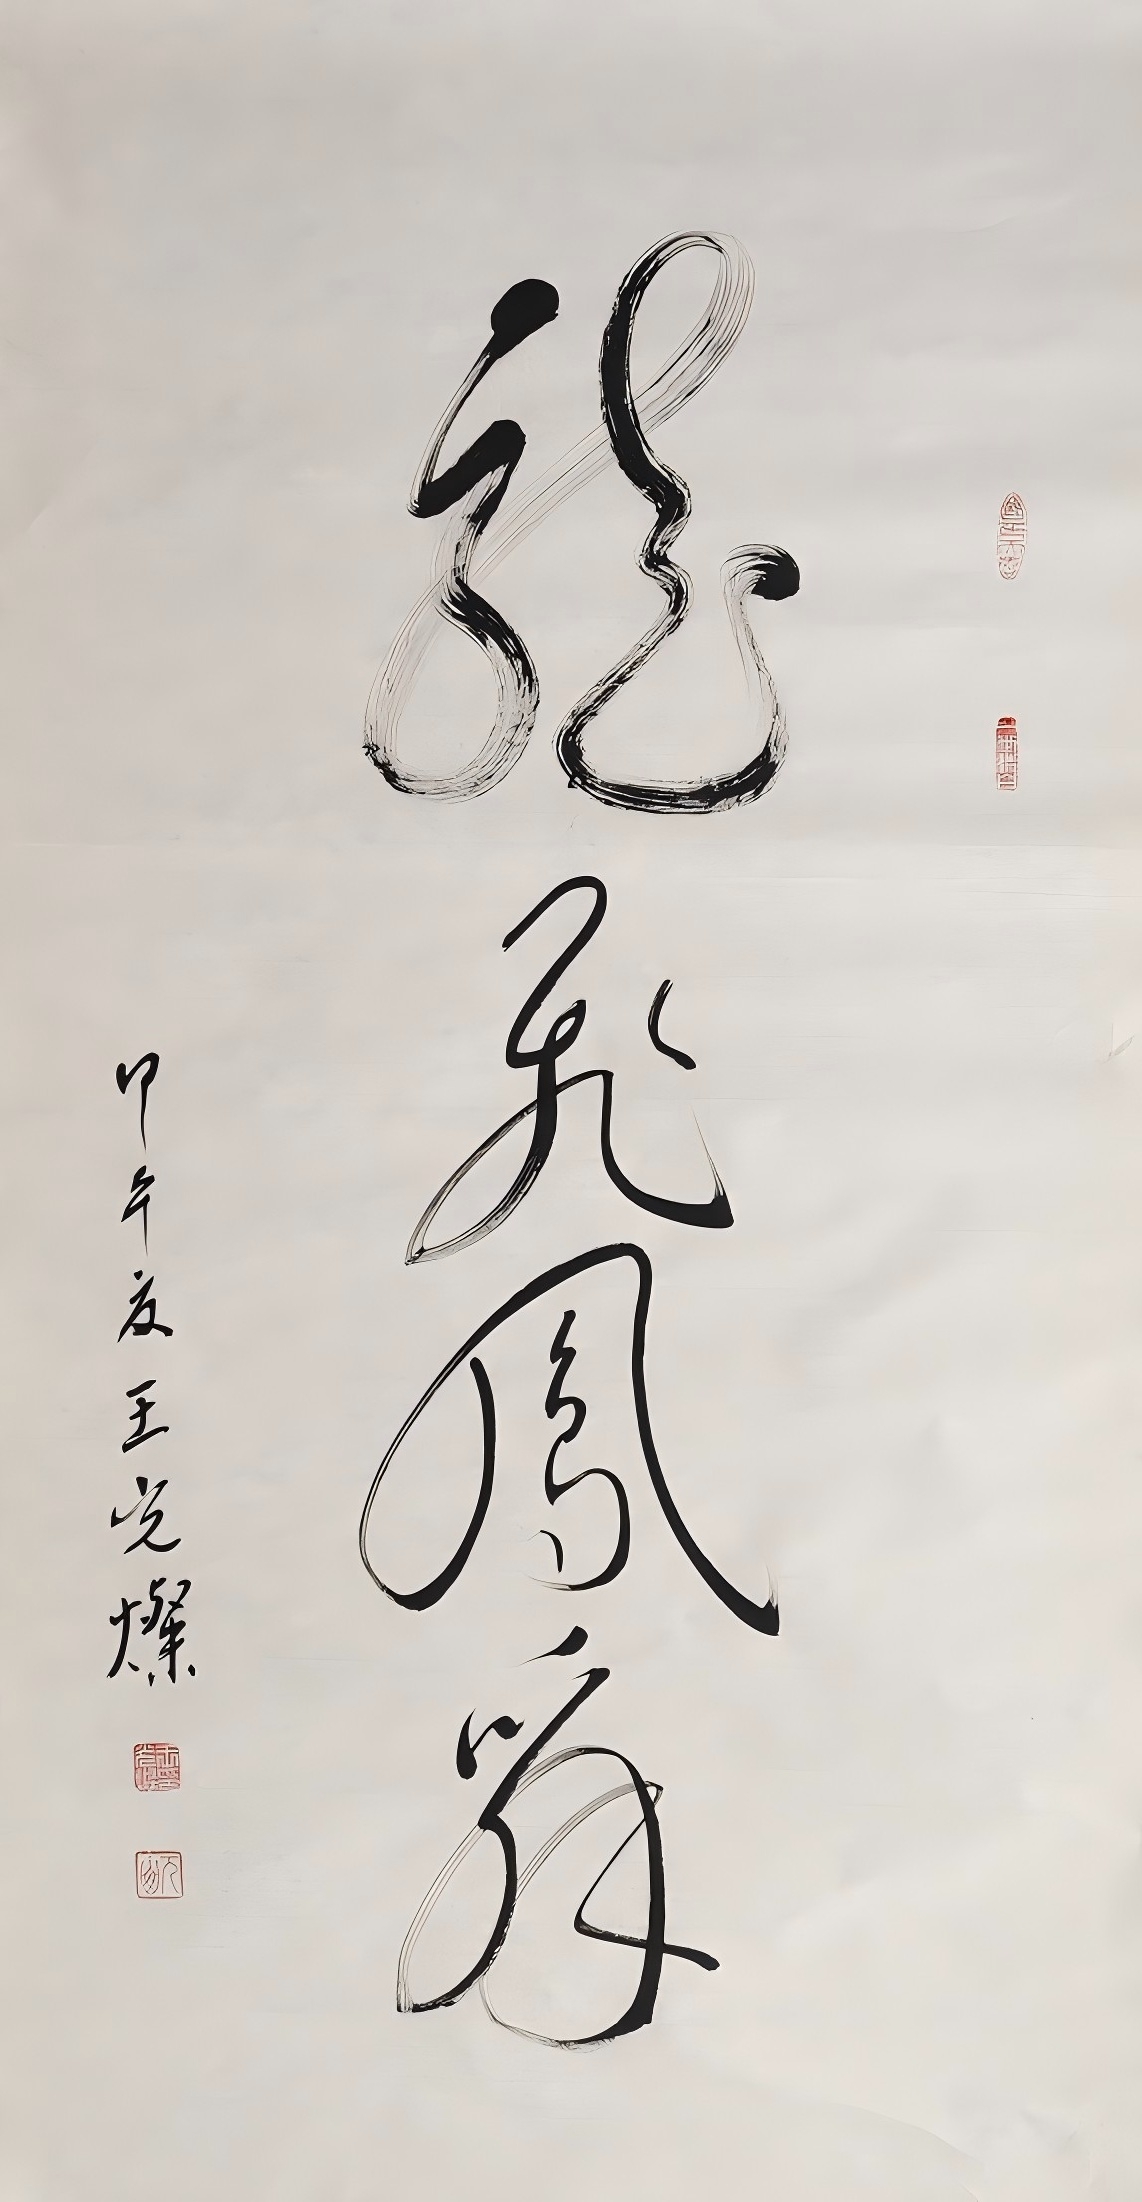 龍飛鳳舞
甲午夏王光燦